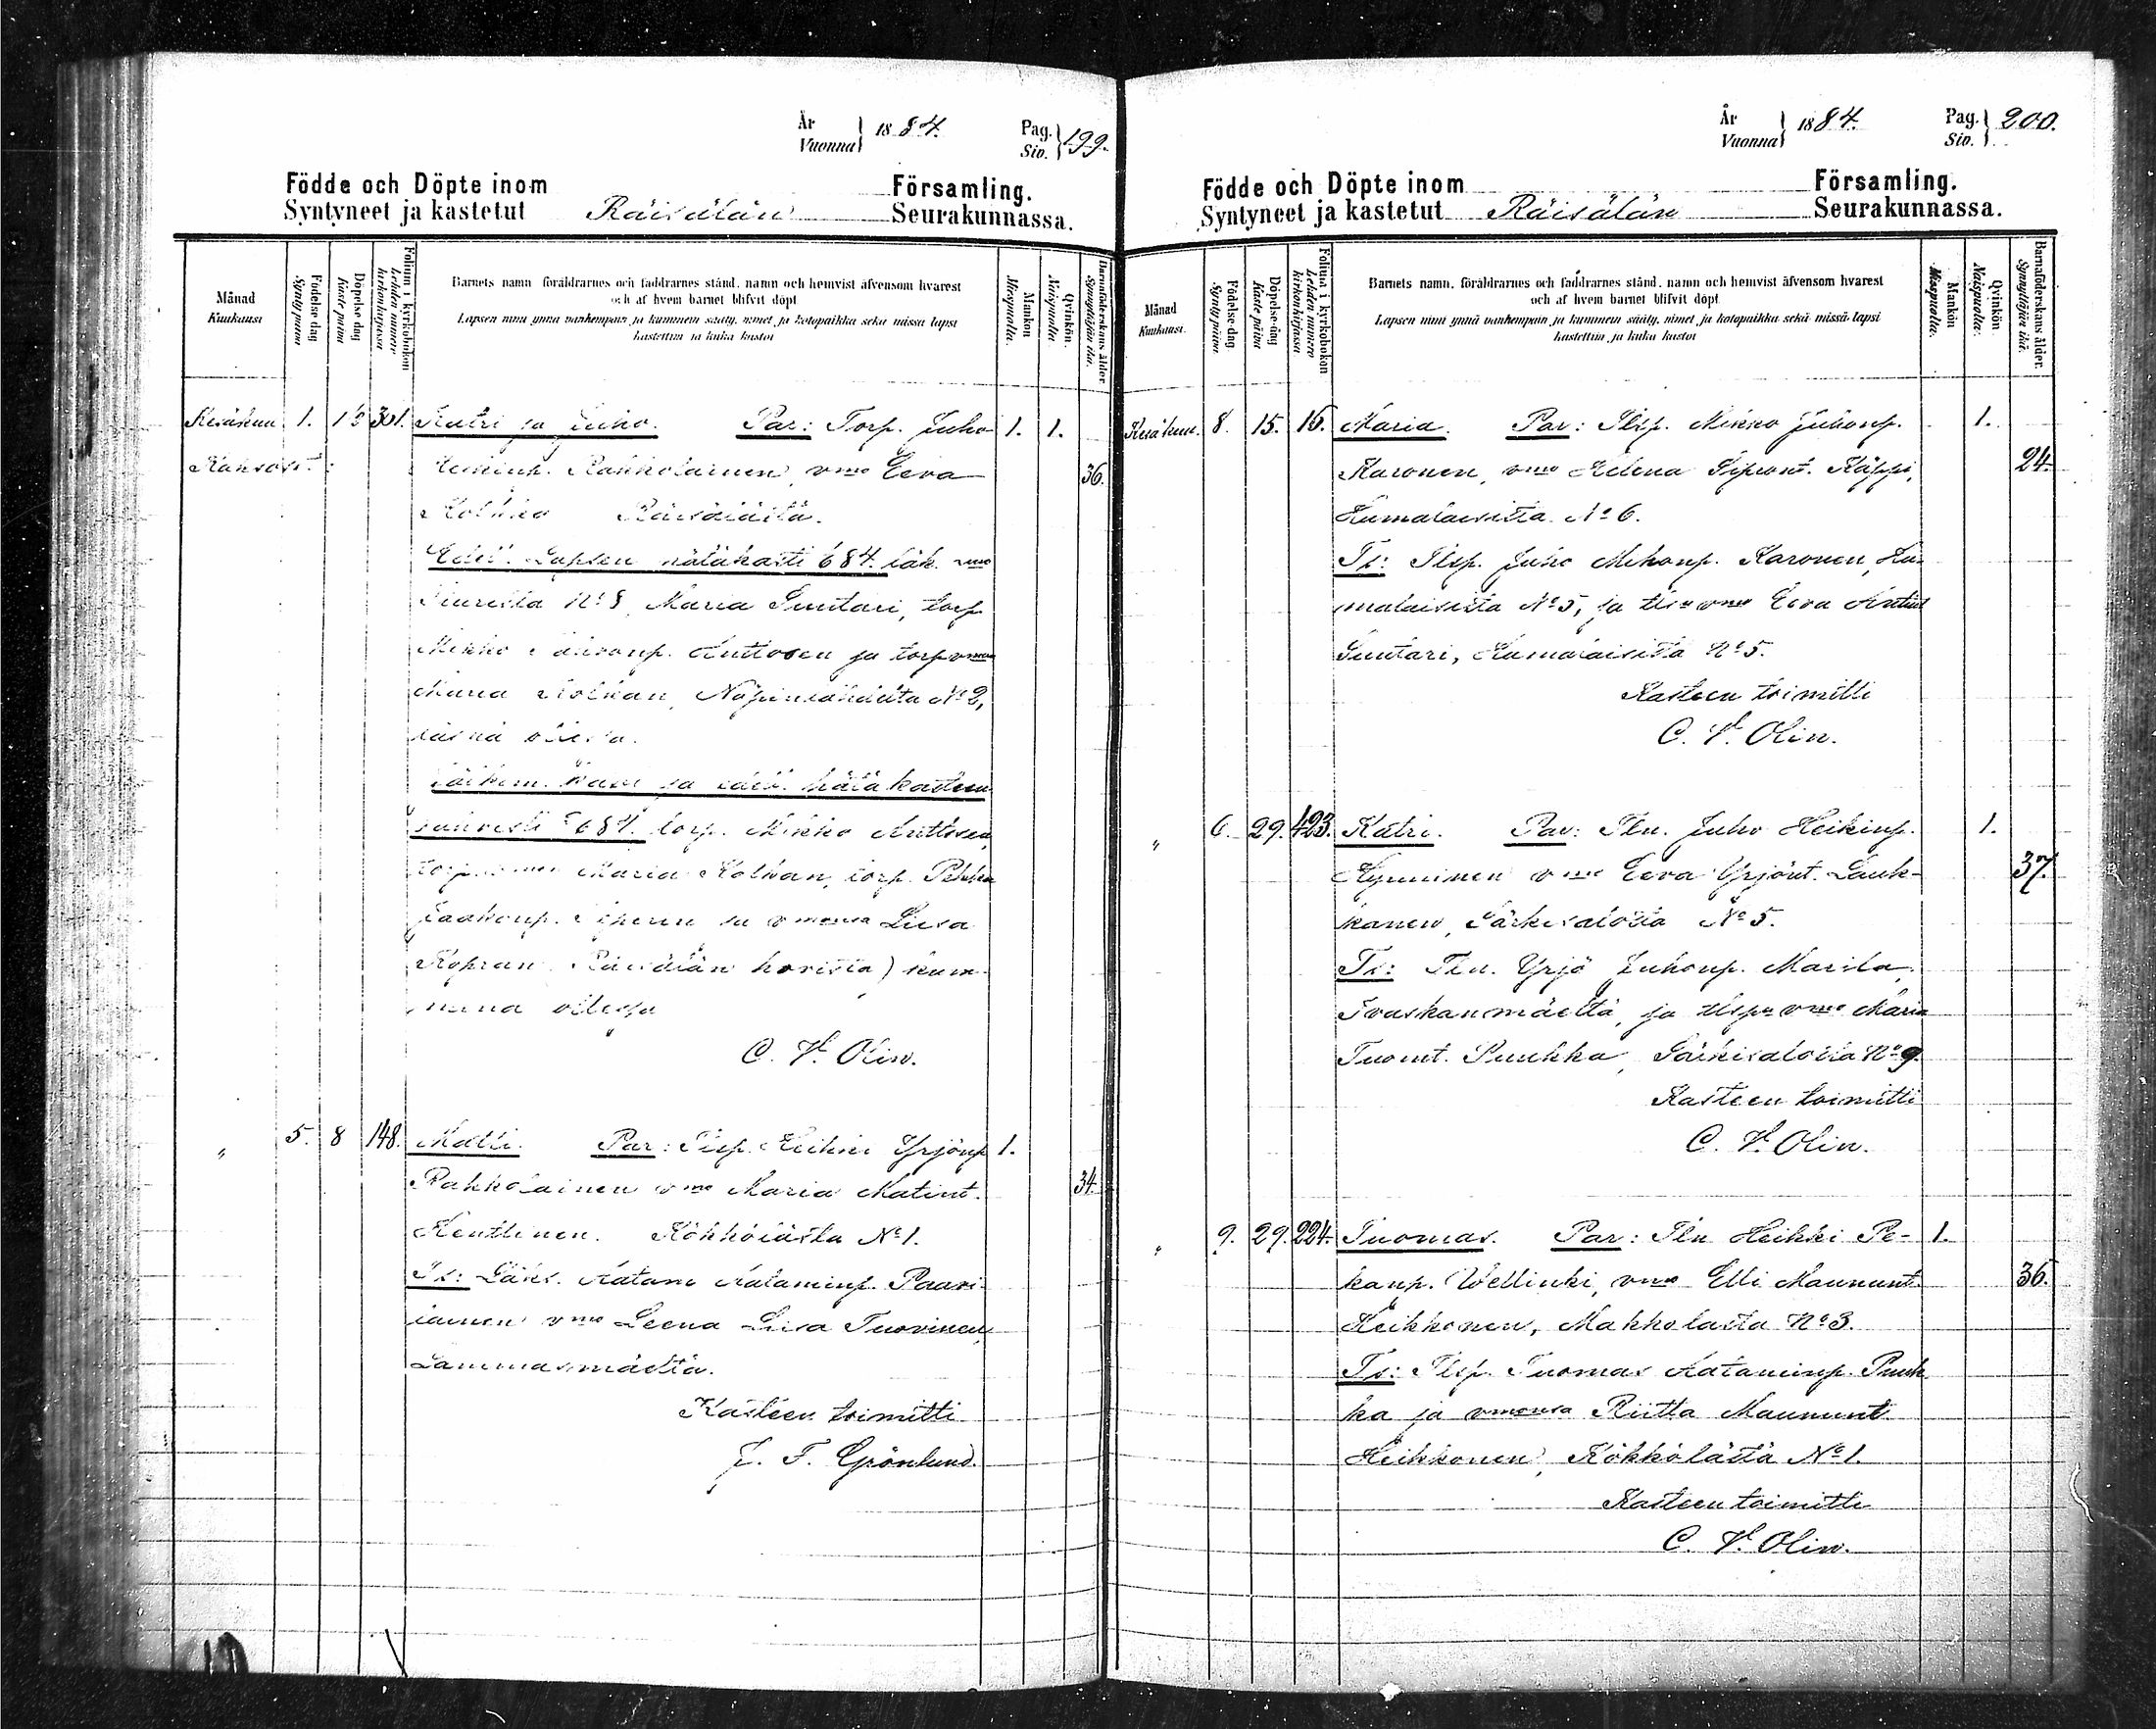 År
Vuonna } 1884.
Pag.
Siv. } 199.
Födde och Döpte inom Församling.
Syntyneet ja kastetut Räisälän Seurakunnassa.
Månad
Kuukausi
Födelse dag
Synty päivä
Döpelse dag
Kaste päivä
Folium i kyrkoboken
Lehden numero
kirkonkirjassa
Barnets namn föräldrarnes och faddrarnes stånd, namn och hemvist äfvensom hvarest
och af hvem barnet blifvit döpt
Lapsen nimi ynnä vanhempain ja kummein sääty, nimet ja kotopaikka sekä missä lapsi
kastettiin ja kuka kastoi
Mankön
Miespuolia.
Qvinkön.
Naispuolia
Barnaföderskans ålder.
Synnyttäjän ikä.
Kesäkuu 1. 15 301. Katri ja Juho. Par: Torp. Juho 1. 1.
Heikinp. Rahkolainen, vmo Eeva 36.
Kolkko Räisälästä.
Lapsen hätäkasti 6 8/4.
N:o 8, Maria Suutari, torp.
Mikko Anttosen ja torp vmon
Maria Kolkan, N:o 2,
läsnä ollessa.
hätäkasteen
6 8/4. torp. Mikko Anttosen,
Maria Kolkan, torp. Pekka
Jaakonp. ja vmonsa Liisa
Kopran Räisälän kum-
mina ollessa
C. V. Olin.
" 5. 8 148. Matti. Par: Tlsp. Heikki Yrjönp 1.
Rahkolainen vmo Maria Matint. 34.
Kenttinen. Kökkölästä N:o 1.
Ts: Aatami Aataminp. Paavi-
lainen vmo Leena Liisa Tuovinen,
Lammasmäeltä.
Kasteen toimitti
J. F. Grönlund.
År
Vuonna } 1884.
Pag.
Siv. } 200.
Födde och Döpte inom Församling.
Syntyneet ja kastetut Räisälän Seurakunnassa.
Månad
Kuukausi.
Födelse-dag
Synty päivä.
Döpelse-dag
Kaste päivä
Folium i kyrkoboken
Lehden numero
kirkonkirjassa
Barnets namn, föräldrarnes och faddrarnes stånd, namn och hemvist äfvensom hvarest
och af hvem barnet blifvit döpt
Lapsen nimi ynnä vanhempain ja kummein sääty, nimet ja kotopaikka sekä missä lapsi
kastettiin ja kuka kastoi
Mankön
Miespuolia.
Qvinkön
Naispuolia.
Barnaföderskans ålder.
Synnyttäjän ikä.
Kesäkuu. 8. 15. 16. Maria. Par: Tlsp. Mikko Juhonp. 1.
Karonen, vmo Helena Sipront. Käppi, 24.
Humalaisista N:o 6.
Ts: Tlsp. Juho Mikonp. Karonen, Hu-
malaisista N:o 5, ja vmo Eeva Antint
Suutari, Humalaisista N:o 5.
Kasteen toimitti
C. V. Olin.
" 6. 29. 423. Katri. Par: Tln. Juho Heikinp. 1.
Hynninen vmo Eeva Yrjönt. Lauk- 37.
kanen, Särkisalosta N:o 5.
Ts: Tln. Yrjö Juhonp. Marila,
Ivaskanmäeltä, ja tlspn vmo Maria
Tuomt. Puukka, Särkisalosta N:o 9.
Kasteen toimitti
C. V. Olin.
" 9. 29. 224. Tuomas. Par: Tln Heikki Pe- 1.
kanp. Wellinki, vmo Elli Maununt. 36.
Heikkonen, Makkolasta N:o 3.
Ts: Tlsp. Tuomas Aataminp. Puuk
ka ja vmonsa Riitta Maununt.
Heikkonen, Kökkölästä N:o 1.
Kasteen toimitti
C. V. Olin.